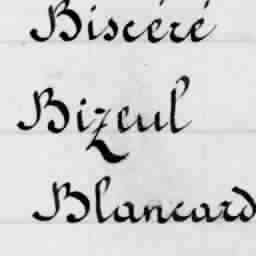 Biscéré
Bizeul
Blancard